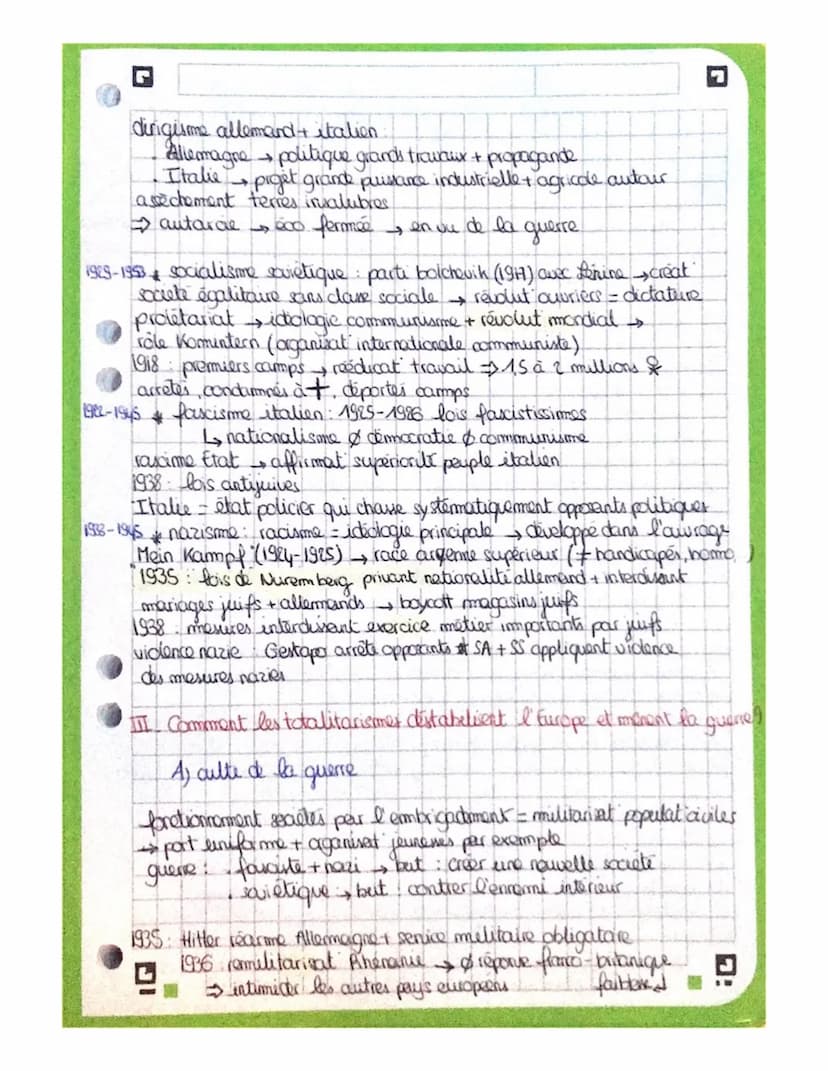 dirigisme allemand + italien :
. Allemagne → politique grands travaux + propagande
. Italie → projet grande puissance industrielle + agricole autour
assèchement terres insalubres
⇒ autarcie → éco fermée → en vu de la guerre
1929-1953 * socialisme soviétique : parti bolchevik (1917) avec Lénine → créat°
société égalitaire sans classe sociale → révolut° ouvriers = dictature
prolétariat → idéologie communisme + révolut° mondial →
rôle Komintern (organisat° internationale communiste)
1918 : premiers camps → rééducat° travail ⇒ 1,5 à 2 millions
arrêtés, condamnés à †, déportés camps
1922-1945 * fascisme italien : 1925-1926 lois fascistissimes
↳ nationalisme Ø démocratie Ø communisme
racisme Etat → affirmat° supériorité peuple italien
1938 : lois antijuives
Italie = état policier qui chasse systématiquement opposants politiques
1933-1945 * nazisme : racisme = idéologie principale → développé dans l'ouvrage
"Mein Kampf" (1924-1925) → race aryenne supérieur (≠ handicapés, homo )
1935 : lois de Nuremberg privant nationalité allemand + interdisant
mariages juifs + allemands → boycott magasins juifs
1938 : mesures interdissent exercice métier importants par juifs
violence nazie : Gestapo arrête opposants SA + SS appliquent violence
des mesures nazies
III. Comment les totalitarismes déstabelient l'Europe et mènent la guerre ?
A) culte de la guerre
fonctionnement sociétés par l'embrigadement = militarisat° populat° civiles
→ port uniforme + organisat° jeunesses par exemple
guerre : . fasciste + nazi → but : créer une nouvelle société
. soviétique → but : contrer l'ennemi intérieur
1935 : Hitler réarme Allemagne + service militaire obligatoire
1936 remilitarisat° Rhénanie → Ø réponse franco-britanique
⇒ intimider les autres pays européens faiblesse ↲